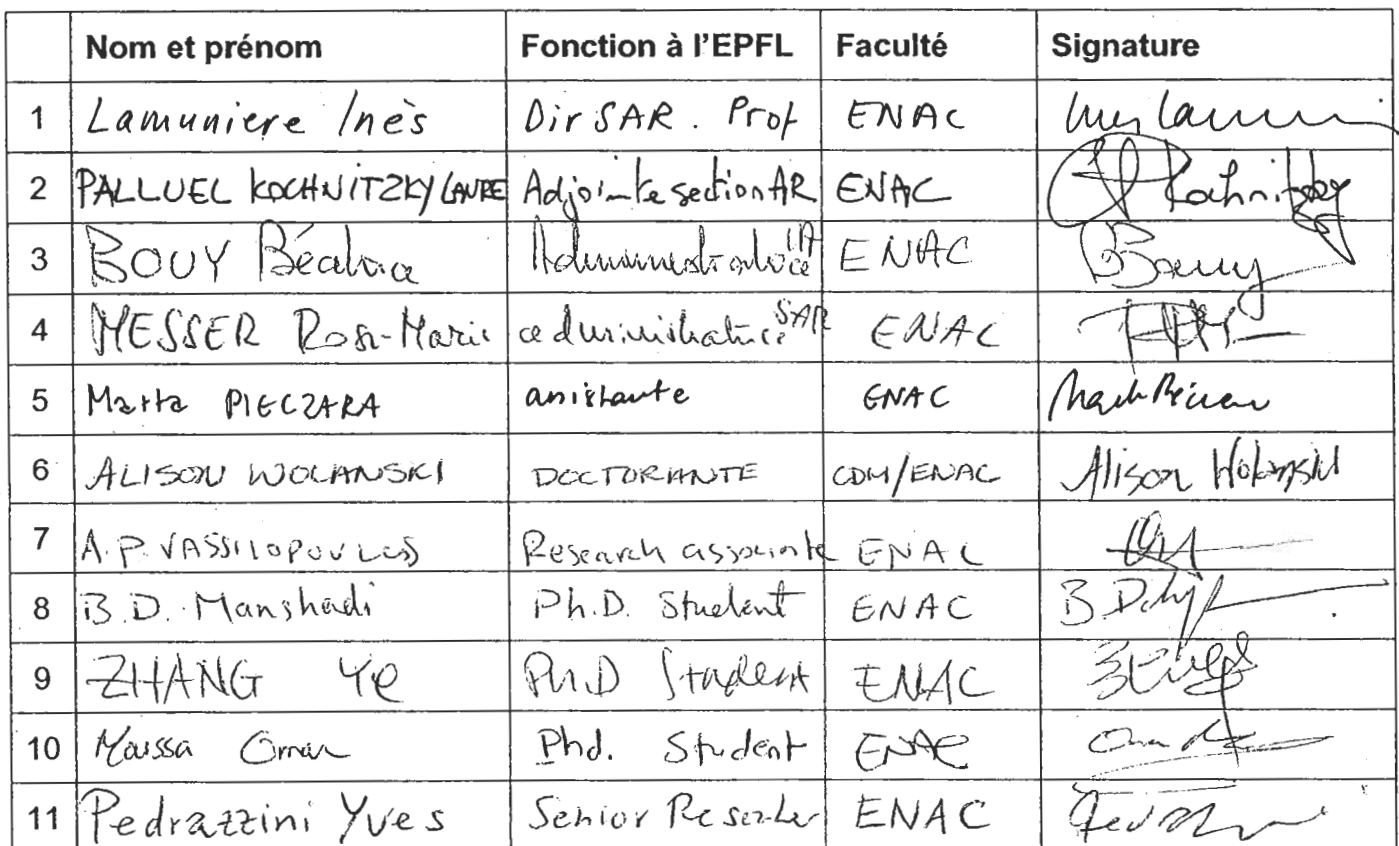 Nom et prénom Fonction à l'EPFL Faculté Signature
1 Lamuniere Inès Dir SAR. Prof ENAC
2 PALLUEL KOCHNITZKY LAURE Adjointe section AR ENAC Kochnitzky
3 BOUY Béatrice Administratrice IA ENAC BBouy
4 MESSER Rose-Marie administratrice SAR ENAC
5 Marta PIECZARA assistante ENAC
6 ALISON WOLANSKI DOCTORANTE CDM/ENAC Alison Wolanski
7 A.P. VASSILOPOULOS Research associate ENAC
8 B.D. Manshadi Ph.D. Student ENAC
9 ZHANG Ye Ph.D Student ENAC
10 Moussa Omar Phd. Student ENAC
11 Pedrazzini Yves Senior ENAC